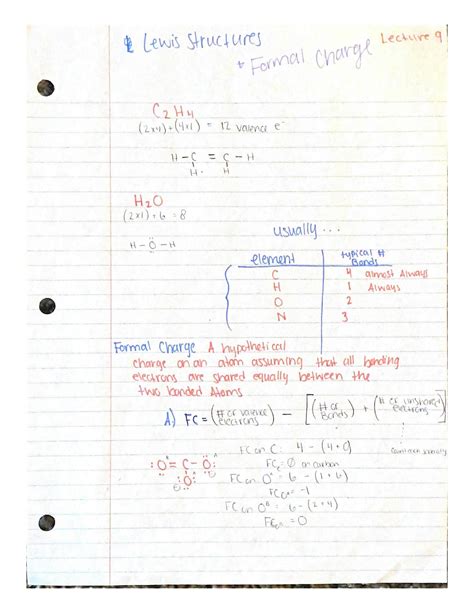 Lewis Structures
+ Formal Charge
Lecture 9
C2H4
(2x4)+(4x1) = 12 valence e⁻
H-C = C-H
H H
H2O
(2x1)+6 = 8
H-Ö-H
usually...
element typical # Bonds
C 4 almost Always
H 1 Always
O 2
N 3
Formal Charge A hypothetical
charge on an atom assuming that all bonding
electrons are shared equally between the
two bonded Atoms
A) FC = (# of valence electrons) - [(# of Bonds) + (# of unshared electrons)]
FC on C: 4 - (4+0)
FC = 0 on carbon
:O = C - O:
:O:
FC on Oᴬ = 6 - (1+6)
= -1
FC on Oᴮ = 6 - (2+4)
= 0